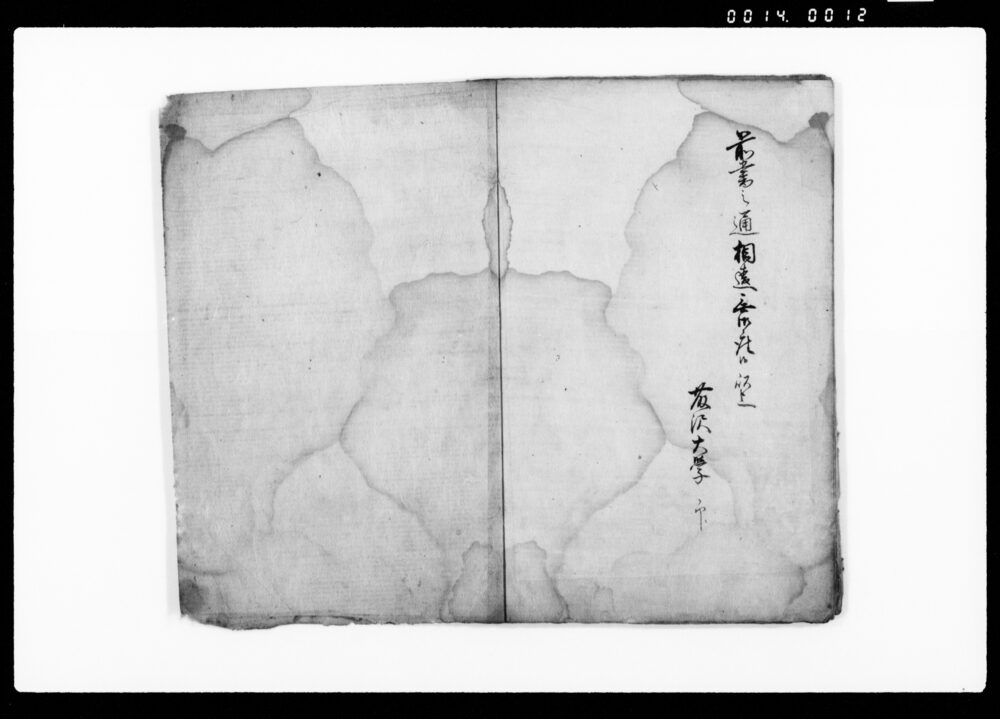 0014. 0012
前書之通相違無御座候以上
藤沢大学 印